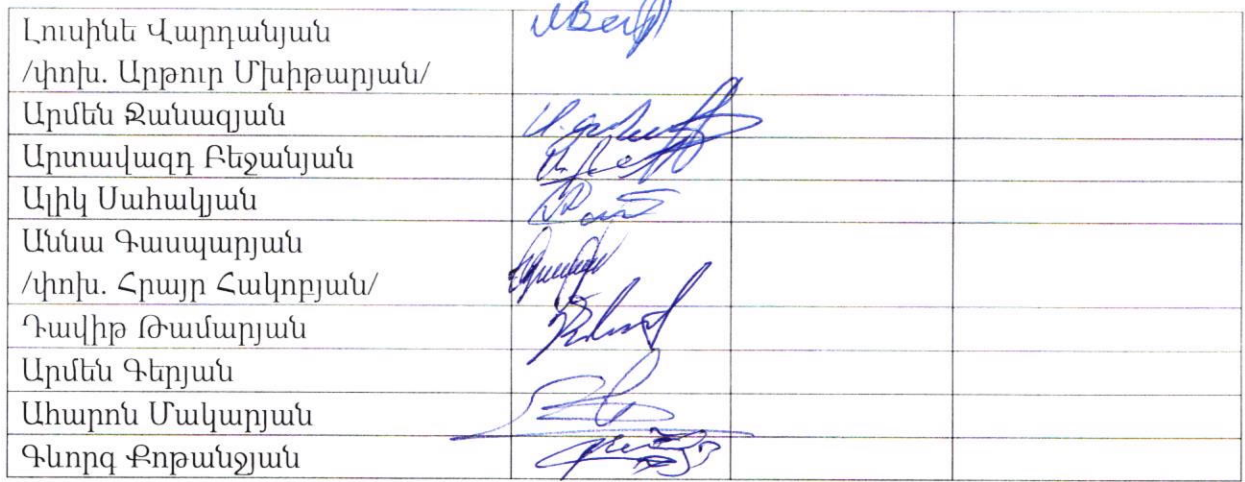 Լուսինե Վարդանյան
/փոխ. Արթուր Մխիթարյան/
Արմեն Ջանազյան
Արտավազդ Բեջանյան
Ալիկ Սահակյան
Աննա Գասպարյան
/փոխ. Հրայր Հակոբյան/
Դավիթ Թամարյան
Արմեն Գերյան
Ահարոն Մակարյան
Գևորգ Քոթանջյան